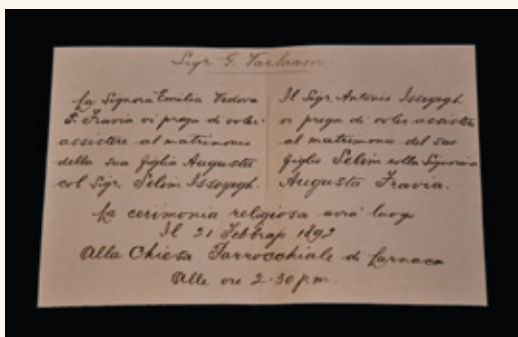 Sigr G. Varlaam
La Signora Emilia Vedova
G. Fravia vi prega di voler
assistere al matrimonio
della sua figlia Augusta
col Sigr. Selim Isseyegh.
Il Sigr Antonio Isseyegh
vi prega di voler assistere
al matrimonio del suo
figlio Selim colla Signorina
Augusta Fravia.
La cerimonia religiosa avrà luogo
Il 21 Febbrajo 1892
Alla Chiesa Parrocchiale di Larnaca
Alle ore 2.30 p.m.